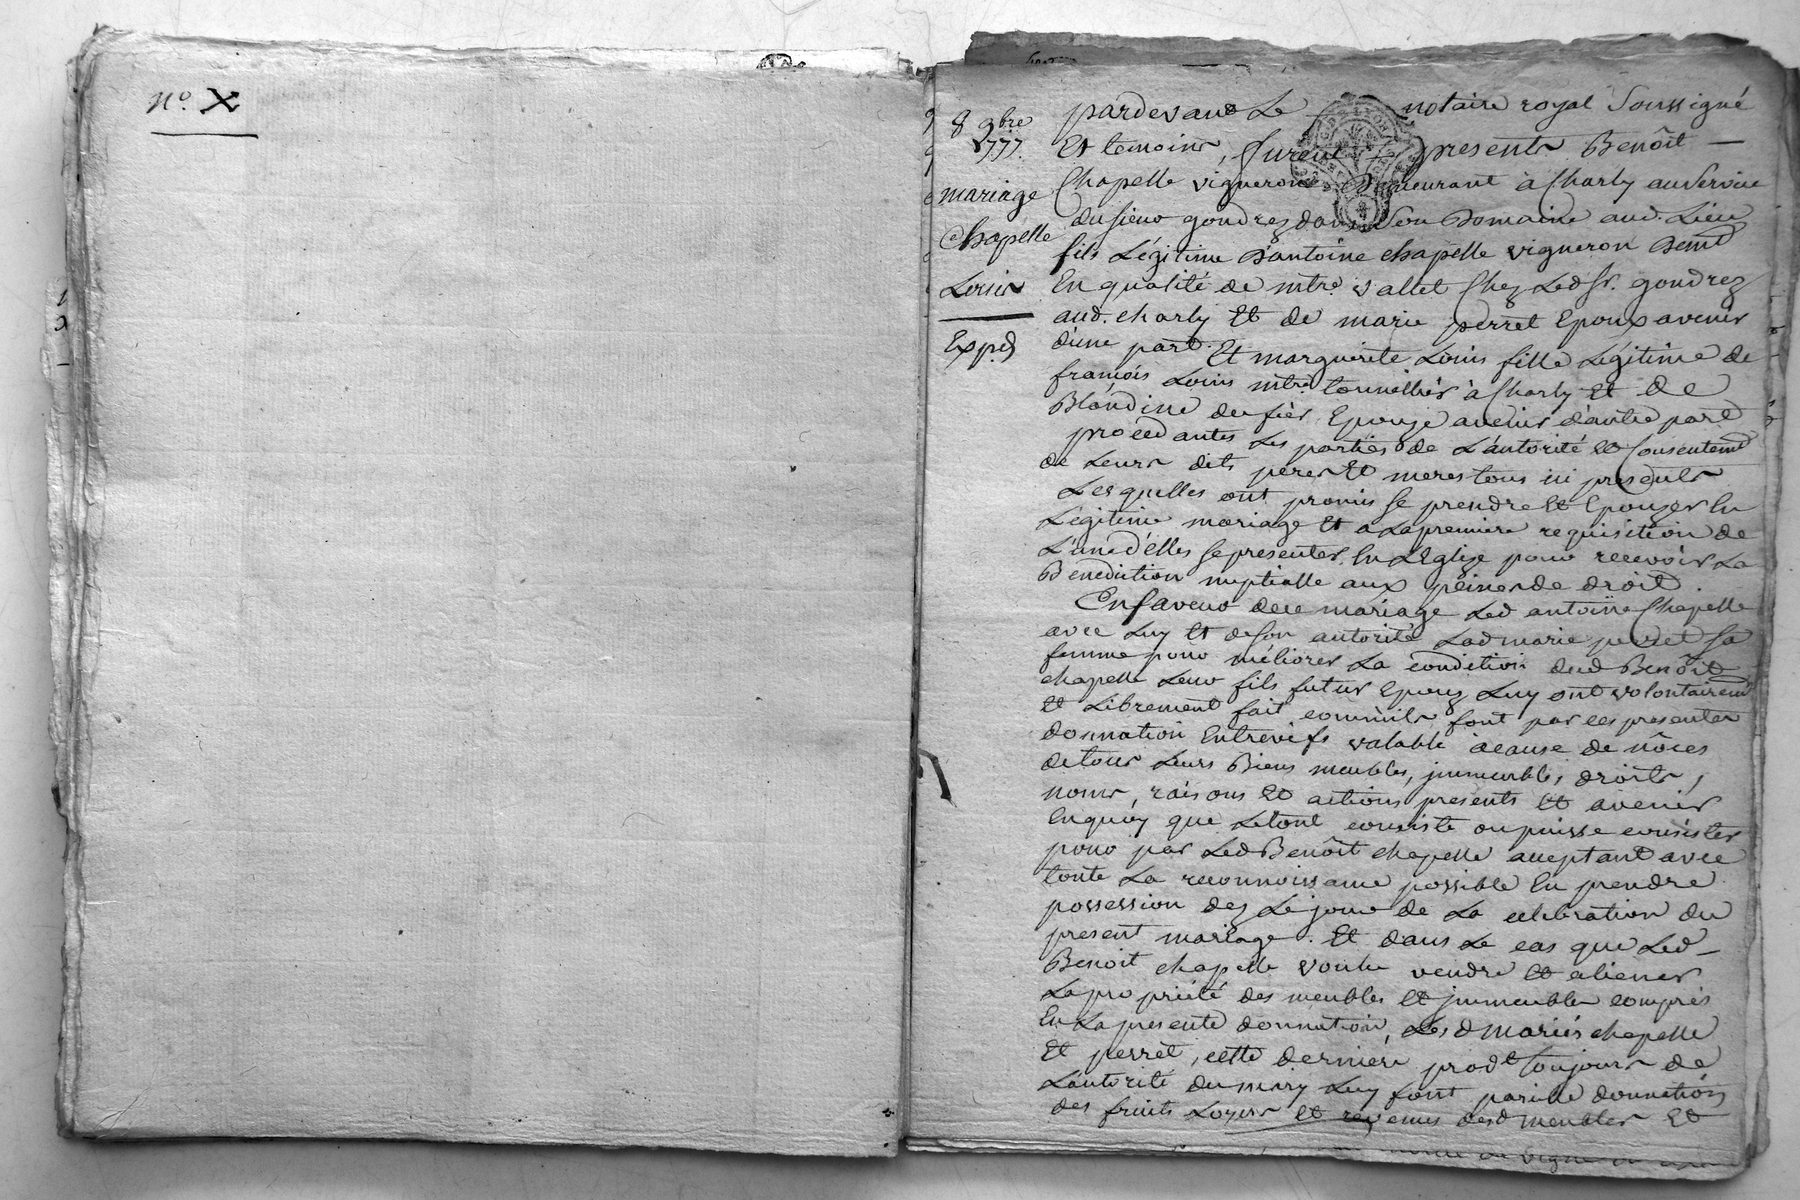 n.o X
8 9bre
1777.
mariage
Chapelle
Louis
Exp.d
pardevant Le notaire royal Soussigné
Et temoins, furent presents Benôit —
Chapelle vigneron demeurant à Charly au Service
du sieur gondrez dans Son Domaine aud. Lieu
fils Légitime D'antoine chapelle vigneron Demt
En qualité de mtre vallet Chez Led Sr. gondrez
aud. charly Et de marie perret Epoux avenir
d'une part. Et marguerite Louis fille Légitime de
françois Louis mtre tonnellier à Charly Et de
Blandine Epouze avenir d'autre part
procedantes Les parties de L'autorité Et Consentemt
de Leurs dits peres Et meres tous ici presents
Lesquelles ont promis Se prendre Et Epouzer En
Légitime mariage Et a La premiere requisition de
L'une d'elles Se presenter En L'Eglize pour recevoir La
Benediction nuptialle aux peines de droit.
En faveur de ce mariage Led antoine Chapelle
avec Luy Et de Son autorité Lad marie perret Sa
femme pour méliorer La condition dud Benôit
chapelle Leur fils futur Epoux Luy ont volontairemt
Et Librement fait, comme ils font par ces presentes
donnation Entrevifs valable àcause de nôces
de tous Leurs Biens meubles, immeubles, droits,
noms, raisons Et actions presents Et avenir
En quoy que Le tout consiste ou puisse consister
pour par Led Benôit chapelle acceptant avec
toute La reconnoissance possible En prendre
possession dez Le jour de La celebration du
present mariage. Et dans Le cas que Led —
Benoit chapelle voulu vendre Et aliener
La proprieté des meubles Et immeubles compris
En La presente donnation, Lesd mariés chapelle
Et perret, cette derniere prodt toujours de
L'autorité du mary Luy font pareille donnation
des fruits Loyers Et revenus desd meubles Et